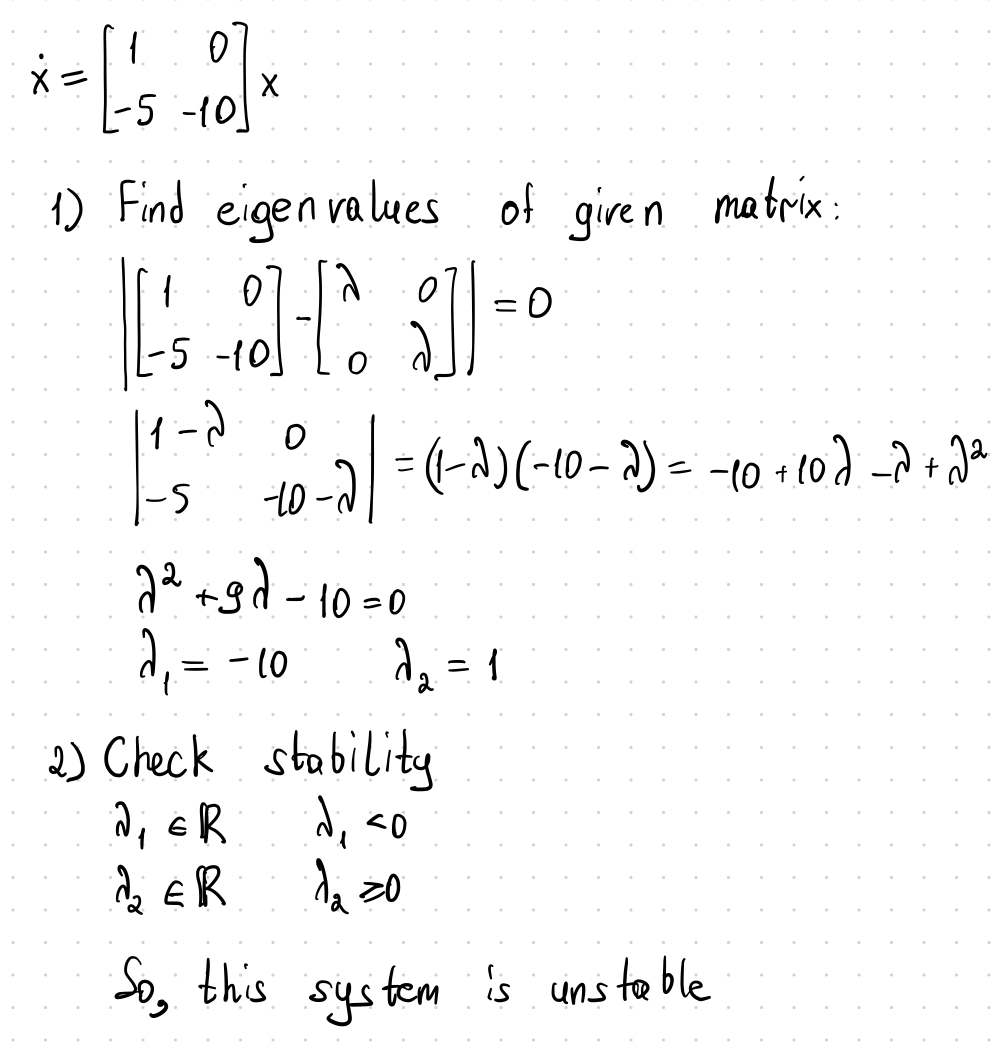 ẋ = [1 0; -5 -10] x
1) Find eigenvalues of given matrix:
|[1 0; -5 -10] - [λ 0; 0 λ]| = 0
|1-λ 0; -5 -10-λ| = (1-λ)(-10-λ) = -10 + 10λ - λ + λ²
λ² + 9λ - 10 = 0
λ₁ = -10 λ₂ = 1
2) Check stability
λ₁ ∈ ℝ λ₁ < 0
λ₂ ∈ ℝ λ₂ ≥ 0
So, this system is unstable